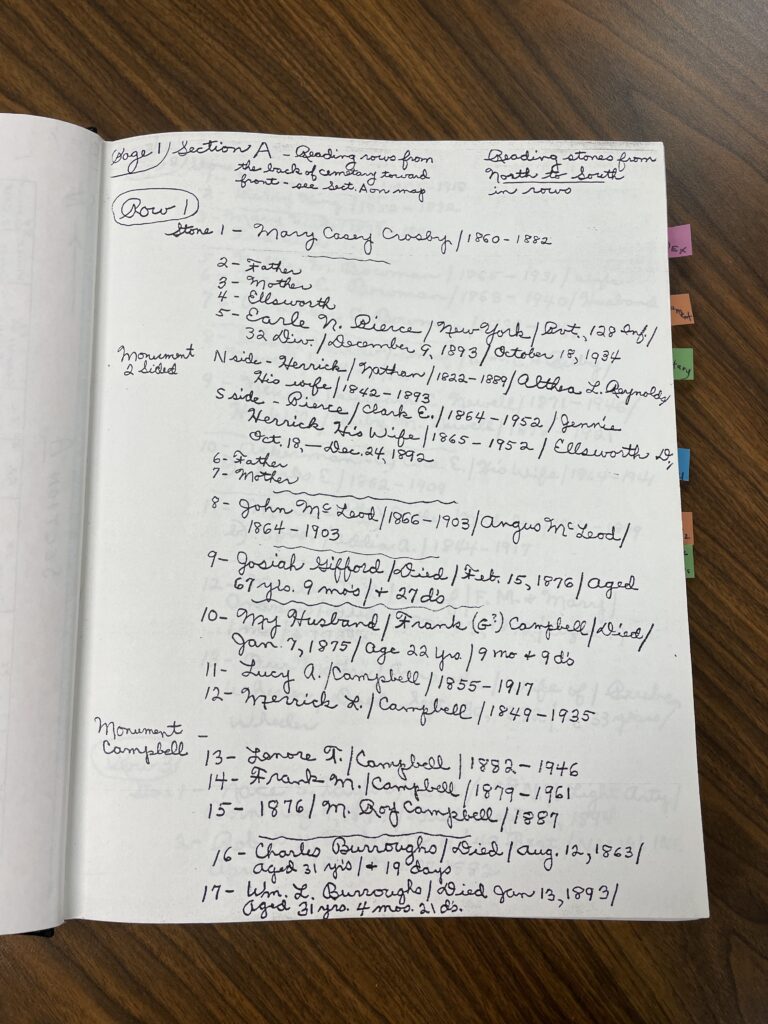 Page 1) Section A - Reading rows from
the back of cemetary toward
front - see Sect. A on map
Reading stones from
North to South
in rows
Row 1
Stone 1 - Mary Casey Crosby / 1860 - 1882
2 - Father
3 - Mother
4 - Ellsworth
5 - Earle N. Pierce / New York / Pvt., 128 Inf. /
32 Div. / December 9, 1893 / October 18, 1934
Monument
2 Sided
N side - Herrick / Nathan / 1822-1889 / Althea L. Reynolds /
His wife / 1842 - 1893
S side - Pierce / Clark E. / 1864 - 1952 / Jennie
Herrick His Wife / 1865 - 1952 / Ellsworth D.,
Oct. 18, - Dec. 24, 1892
6 - Father
7 - Mother
8 - John McLeod / 1866 - 1903 / Angus McLeod /
1864 - 1903
9 - Josiah Gifford / Died / Feb. 15, 1876 / aged
67 yrs. 9 mo's / + 27 d's
10 - My Husband / Frank (G?) Campbell / Died /
Jan. 7, 1875 / age 22 yrs / 9 mo + 9 d's
11 - Lucy A. / Campbell / 1855 - 1917
12 - Merrick L. / Campbell / 1849 - 1935
Monument -
Campbell
13 - Lenore T. / Campbell / 1882 - 1946
14 - Frank M. / Campbell / 1879 - 1961
15 - 1876 / M. Roy Campbell / 1887
16 - Charles Burroughs / Died / Aug. 12, 1863 /
aged 31 yr's / + 19 days
17 - Wm. L. Burroughs / Died Jan 13, 1893 /
Aged 31 yrs. 4 mos. 21 ds.